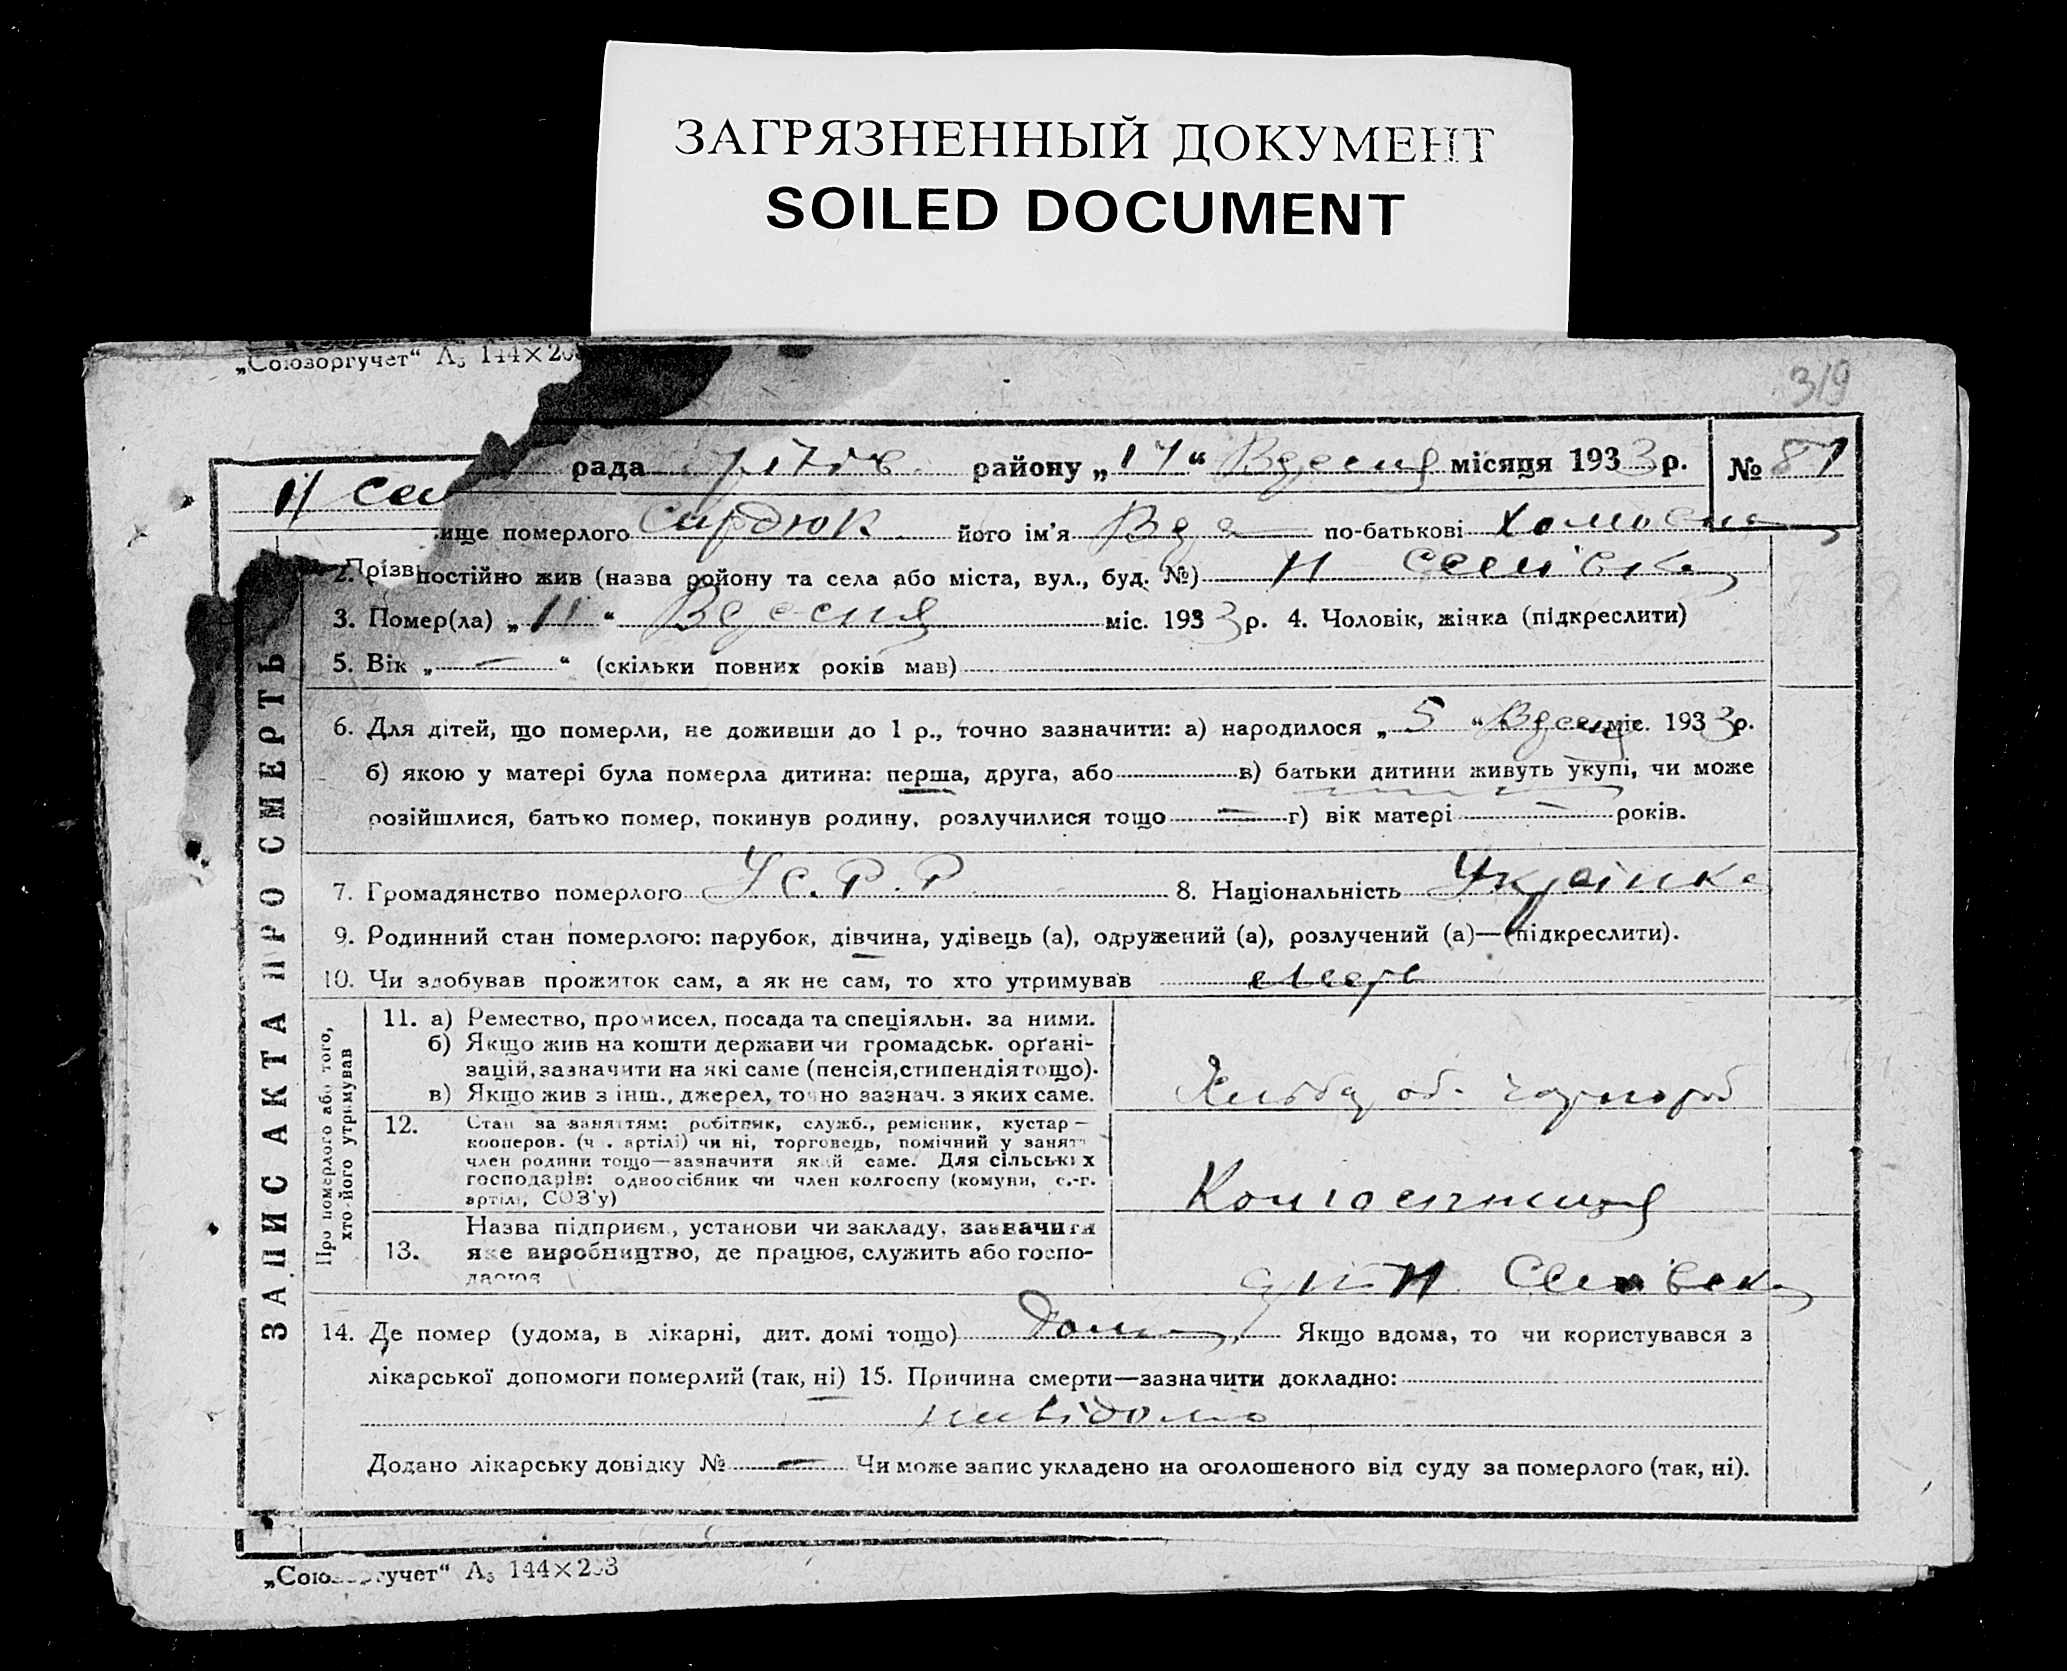 ЗАГРЯЗНЕННЫЙ ДОКУМЕНТ
SOILED DOCUMENT
„Союзоргучет“ А₅ 144×20
319
рада району „17“ Вересня місяця 1933 р. № 81
ище померлого Сирдюк його ім'я по-батькові
Прізв
2. постійно жив (назва району та села або міста, вул., буд. №) Н
3. Помер(ла) „11“ Вересня міс. 1933 р. 4. Чоловік, жінка (підкреслити)
5. Вік „—“ (скільки повних років мав)
6. Для дітей, що померли, не доживши до 1 р., точно зазначити: а) народилося „5“ Вересня міс. 1933 р.
б) якою у матері була померла дитина: перша, друга, або в) батьки дитини живуть укупі, чи може
розійшлися, батько помер, покинув родину, розлучилися тощо — г) вік матері — років.
7. Громадянство померлого УС.Р.Р 8. Національність Українка
9. Родинний стан померлого: парубок, дівчина, удівець (а), одружений (а), розлучений (а)—(підкреслити).
10. Чи здобував прожиток сам, а як не сам, то хто утримував
ЗАПИС АКТА ПРО СМЕРТЬ
Про померлого або того,
хто його утримував
11. а) Ремество, промисел, посада та спеціяльн. за ними.
б) Якщо жив на кошти держави чи громадськ. орґані-
зацій, зазначити на які саме (пенсія, стипендія тощо).
в) Якщо жив з інш., джерел, точно зазнач. з яких саме.
12. Стан за заняттям: робітник, служб., ремісник, кустар —
кооперов. (ч. артілі) чи ні, торговець, помічний у занят
член родини тощо—зазначити який саме. Для сільських
господарів: одноосібник чи член колгоспу (комуни, с.-г.
артілі, СОЗ'у)
13. Назва підприєм., установи чи закладу, зазначити
яке виробництво, де працює, служить або госпо-
дарює
14. Де помер (удома, в лікарні, дит. домі тощо) дома Якщо вдома, то чи користувався з
лікарської допомоги померлий (так, ні) 15. Причина смерти—зазначити докладно:
невідомо
Додано лікарську довідку № — Чи може запис укладено на оголошеного від суду за померлого (так, ні).
„Союзоргучет“ А₅ 144×203